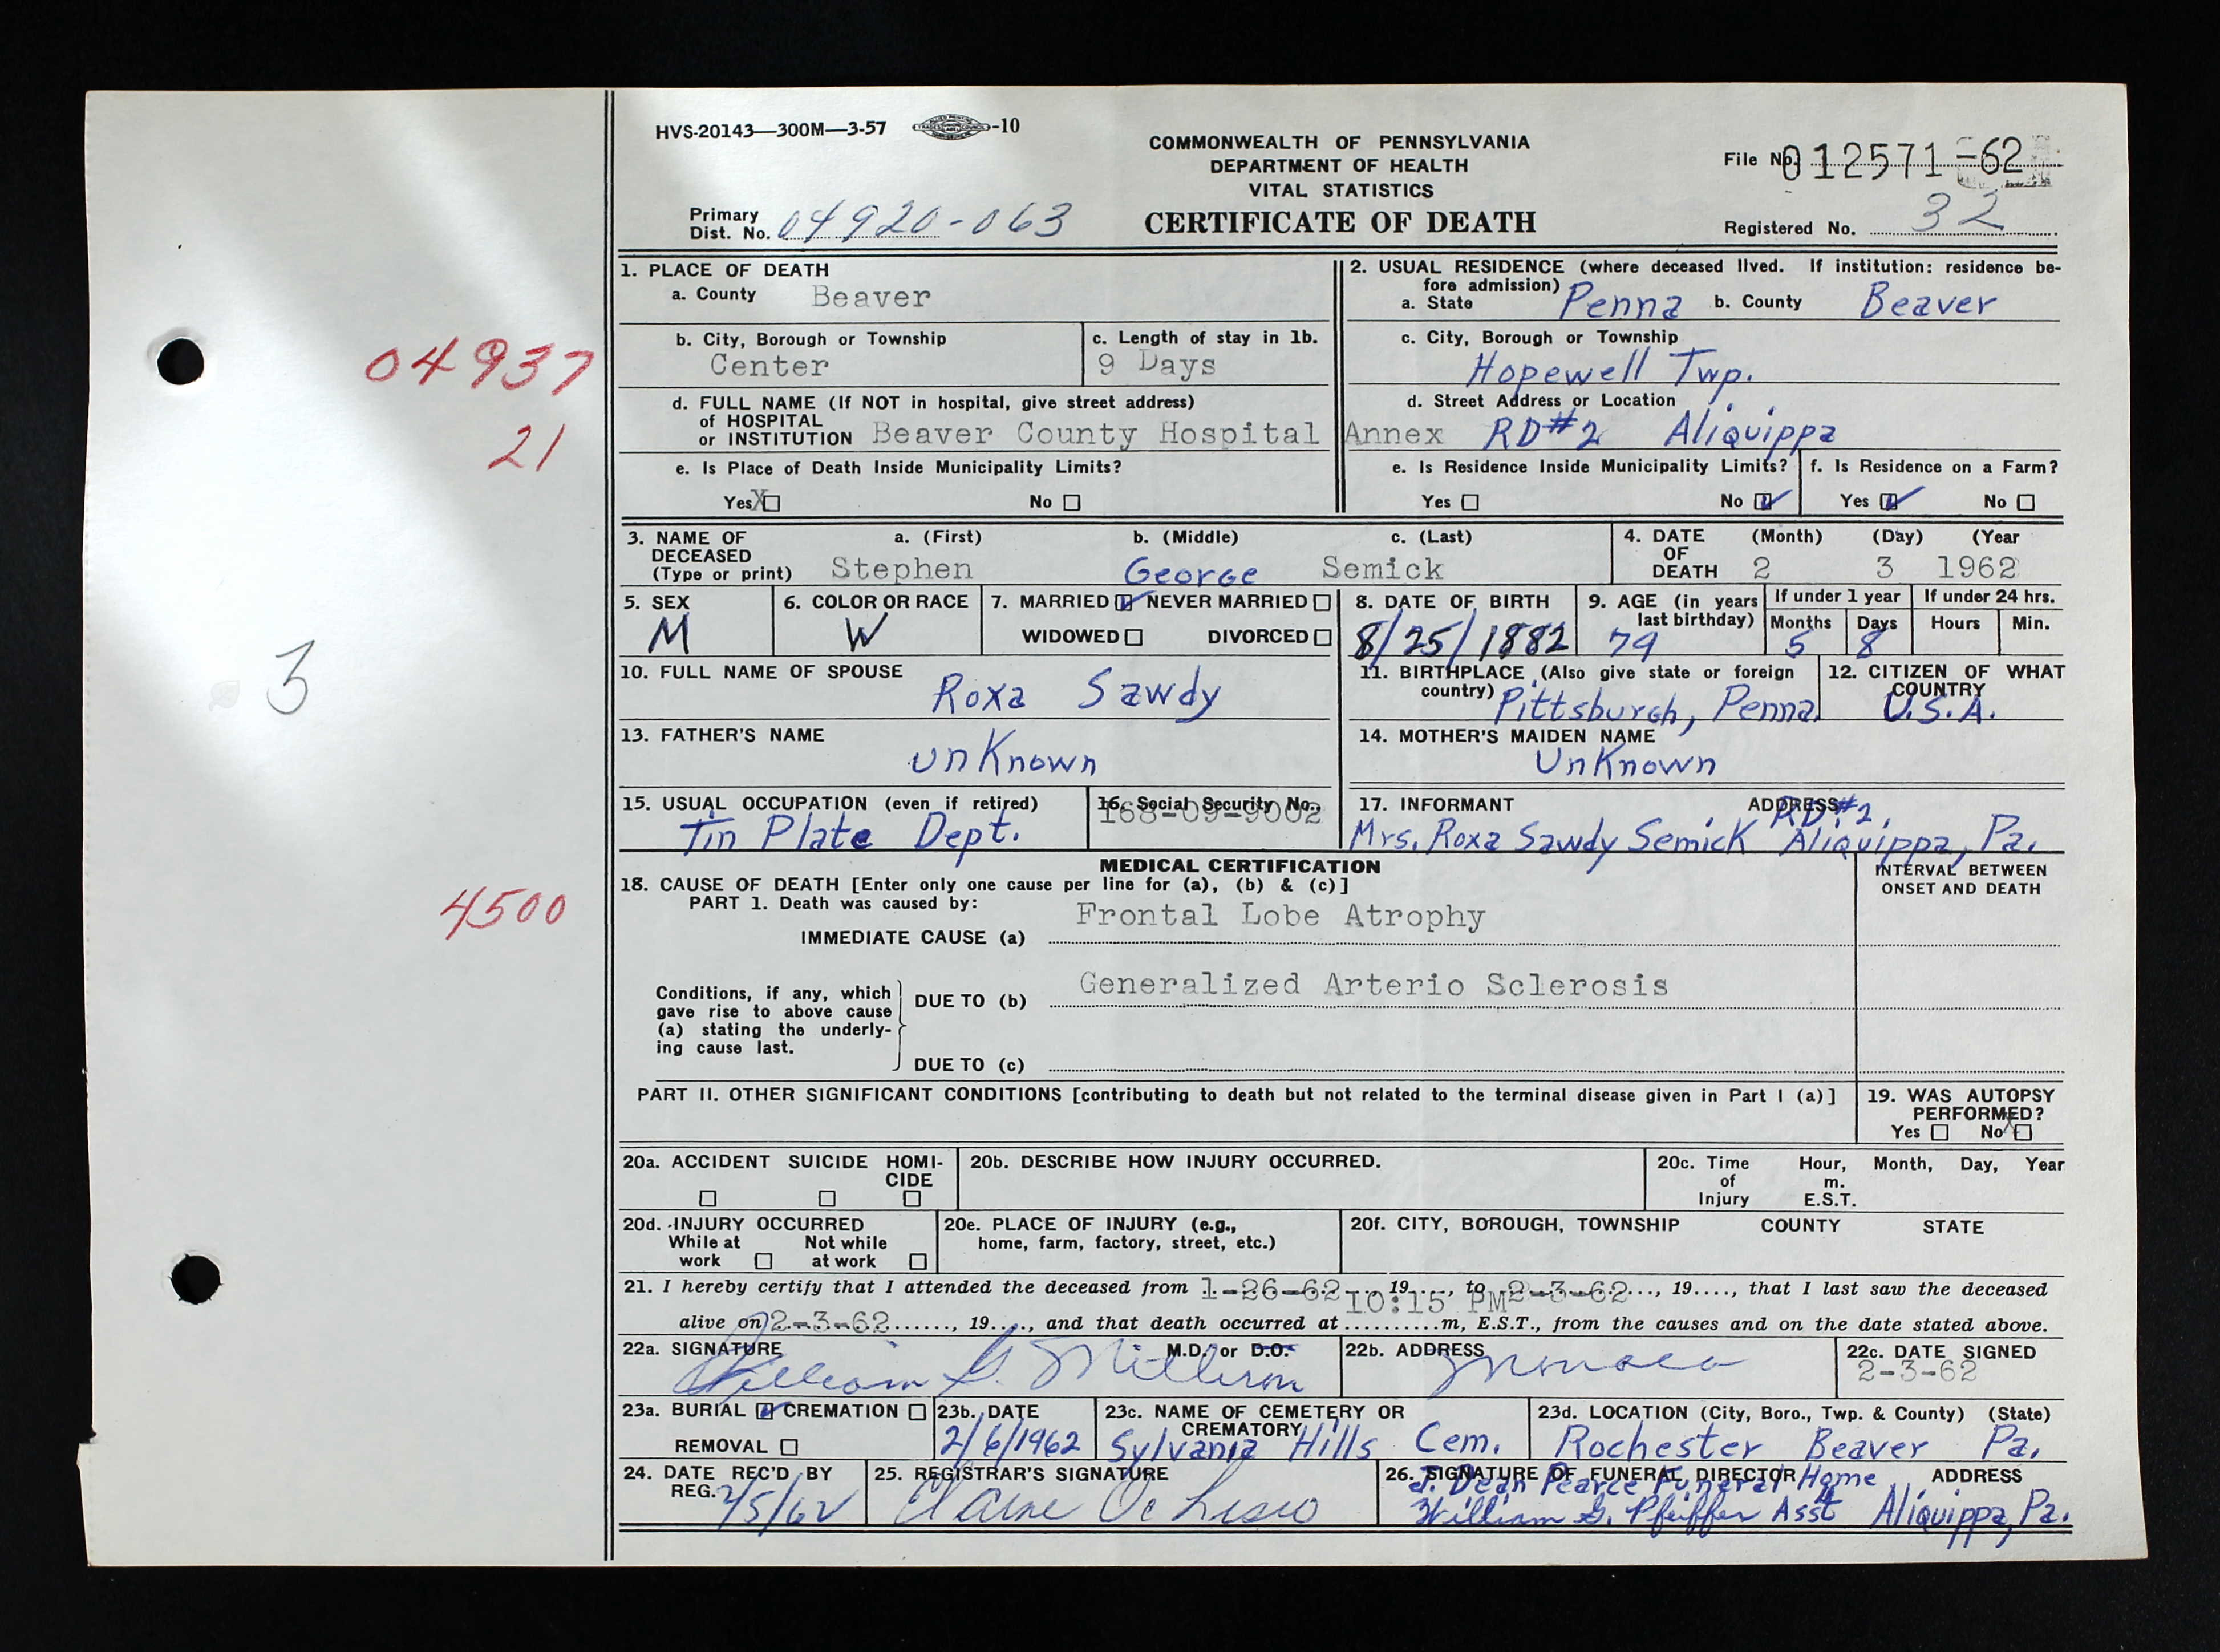 HVS-20143—300M—3-57 -10
COMMONWEALTH OF PENNSYLVANIA
DEPARTMENT OF HEALTH
VITAL STATISTICS
CERTIFICATE OF DEATH
File No. 012571-62
Primary Dist. No. 04920-063
Registered No. 32
04937
21
3
4500
1. PLACE OF DEATH
a. County Beaver
b. City, Borough or Township
Center
c. Length of stay in 1b.
9 Days
d. FULL NAME (If NOT in hospital, give street address)
of HOSPITAL
or INSTITUTION Beaver County Hospital Annex
e. Is Place of Death Inside Municipality Limits?
Yes X No
2. USUAL RESIDENCE (where deceased lived. If institution: residence be-
fore admission)
a. State Penna b. County Beaver
c. City, Borough or Township
Hopewell Twp.
d. Street Address or Location
RD#2 Aliquippa
e. Is Residence Inside Municipality Limits?
Yes No ✓
f. Is Residence on a Farm?
Yes ✓ No
3. NAME OF DECEASED (Type or print)
a. (First) b. (Middle) c. (Last)
Stephen George Semick
4. DATE OF DEATH (Month) (Day) (Year
2 3 1962
5. SEX
M
6. COLOR OR RACE
W
7. MARRIED ✓ NEVER MARRIED
WIDOWED DIVORCED
8. DATE OF BIRTH
8/25/1882
9. AGE (in years last birthday)
79
If under 1 year
Months Days
5 8
If under 24 hrs.
Hours Min.
10. FULL NAME OF SPOUSE
Roxa Sawdy
11. BIRTHPLACE (Also give state or foreign country)
Pittsburgh, Penna.
12. CITIZEN OF WHAT COUNTRY
U.S.A.
13. FATHER'S NAME
unKnown
14. MOTHER'S MAIDEN NAME
UnKnown
15. USUAL OCCUPATION (even if retired)
Tin Plate Dept.
16. Social Security No.
168-09-9002
17. INFORMANT ADDRESS
Mrs. Roxa Sawdy Semick RD#2, Aliquippa, Pa.
MEDICAL CERTIFICATION
18. CAUSE OF DEATH [Enter only one cause per line for (a), (b) & (c)]
PART 1. Death was caused by:
IMMEDIATE CAUSE (a) Frontal Lobe Atrophy
INTERVAL BETWEEN
ONSET AND DEATH
Conditions, if any, which
gave rise to above cause
(a) stating the underly-
ing cause last.
DUE TO (b) Generalized Arterio Sclerosis
DUE TO (c)
PART II. OTHER SIGNIFICANT CONDITIONS [contributing to death but not related to the terminal disease given in Part I (a)]
19. WAS AUTOPSY
PERFORMED?
Yes No X
20a. ACCIDENT SUICIDE HOMI-
CIDE
20b. DESCRIBE HOW INJURY OCCURRED.
20c. Time of Injury Hour, Month, Day, Year
m.
E.S.T.
20d. INJURY OCCURRED
While at work Not while at work
20e. PLACE OF INJURY (e.g.,
home, farm, factory, street, etc.)
20f. CITY, BOROUGH, TOWNSHIP COUNTY STATE
21. I hereby certify that I attended the deceased from 1-26-62, 19...., to 2-3-62, 19...., that I last saw the deceased
alive on 2-3-62, 19...., and that death occurred at 10:15 PM m, E.S.T., from the causes and on the date stated above.
22a. SIGNATURE M.D. or D.O.
William G. Milliron
22b. ADDRESS
Monaca
22c. DATE SIGNED
2-3-62
23a. BURIAL ✓ CREMATION
REMOVAL
23b. DATE
2/6/1962
23c. NAME OF CEMETERY OR
CREMATORY
Sylvania Hills Cem.
23d. LOCATION (City, Boro., Twp. & County) (State)
Rochester Beaver Pa.
24. DATE REC'D BY
REG. 2/5/62
25. REGISTRAR'S SIGNATURE
26. SIGNATURE OF FUNERAL DIRECTOR ADDRESS
J. Dean Pearce Funeral Home
William G. Pfeiffer Asst Aliquippa, Pa.